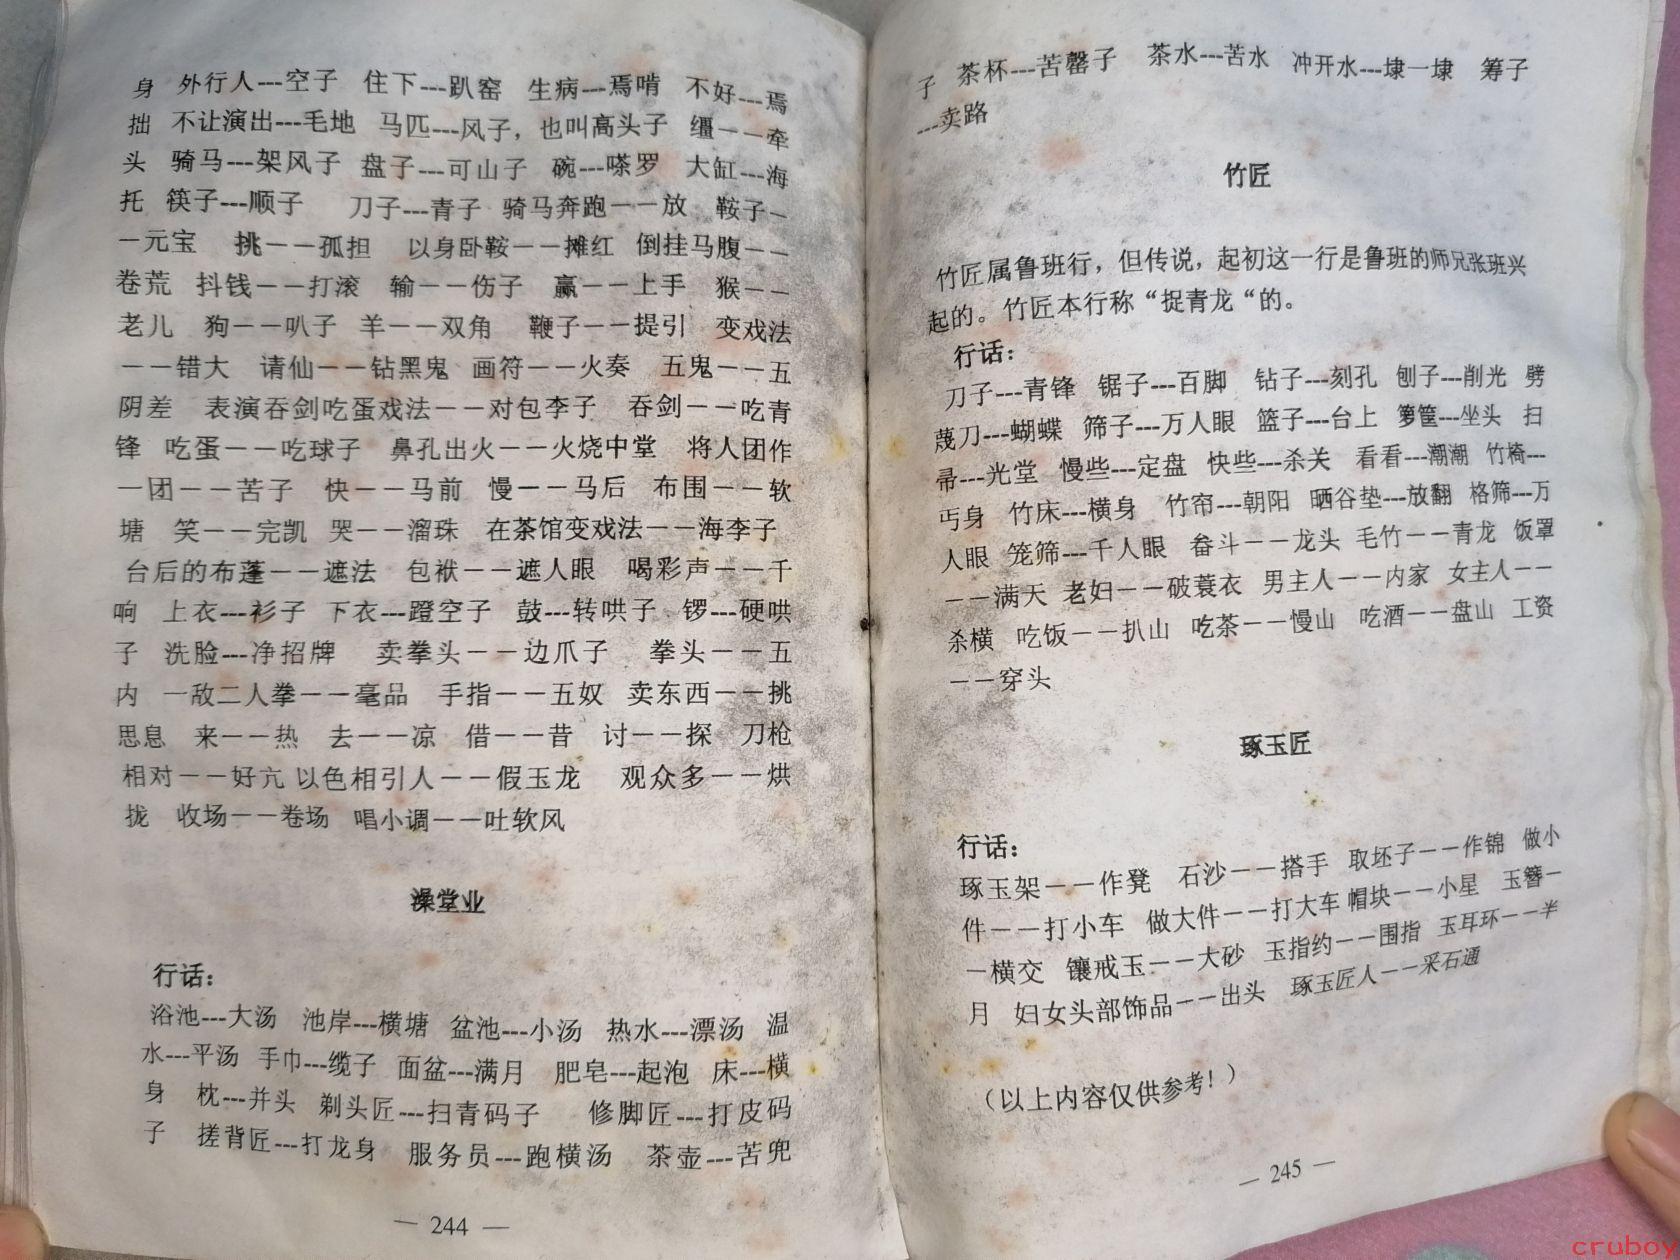 身 外行人---空子 住下---趴窑 生病---焉啃 不好---焉
拙 不让演出---毛地 马匹---风子，也叫高头子 缰－－牵
头 骑马---架风子 盘子---可山子 碗---嗏罗 大缸---海
托 筷子---顺子 刀子---青子 骑马奔跑－－放 鞍子－
－元宝 挑－－孤担 以身卧鞍－－摊红 倒挂马腹－－
卷荒 抖钱－－打滚 输－－伤子 赢－－上手 猴－－
老儿 狗－－叭子 羊－－双角 鞭子－－提引 变戏法
－－错大 请仙－－钻黑鬼 画符－－火奏 五鬼－－五
阴差 表演吞剑吃蛋戏法－－对包李子 吞剑－－吃青
锋 吃蛋－－吃球子 鼻孔出火－－火烧中堂 将人团作
一团－－苦子 快－－马前 慢－－马后 布围－－软
塘 笑－－完凯 哭－－溜珠 在茶馆变戏法－－海李子
台后的布蓬－－遮法 包袱－－遮人眼 喝彩声－－千
响 上衣---衫子 下衣---蹬空子 鼓---转哄子 锣---硬哄
子 洗脸---净招牌 卖拳头－－边爪子 拳头－－五
内 一敌二人拳－－毫品 手指－－五奴 卖东西－－挑
思息 来－－热 去－－凉 借－－昔 讨－－探 刀枪
相对－－好亢 以色相引人－－假玉龙 观众多－－烘
拢 收场－－卷场 唱小调－－吐软风
澡堂业
行话：
浴池---大汤 池岸---横塘 盆池---小汤 热水---漂汤 温
水---平汤 手巾---缆子 面盆---满月 肥皂---起泡 床---横
身 枕---并头 剃头匠---扫青码子 修脚匠---打皮码
子 搓背匠---打龙身 服务员---跑横汤 茶壶---苦兜
— 244 —
子 茶杯---苦罄子 茶水---苦水 冲开水---埭一埭 筹子
---卖路
竹匠
竹匠属鲁班行，但传说，起初这一行是鲁班的师兄张班兴
起的。竹匠本行称“捉青龙“的。
行话：
刀子---青锋 锯子---百脚 钻子---刻孔 刨子---削光 劈
蔑刀---蝴蝶 筛子---万人眼 篮子---台上 箩筐---坐头 扫
帚---光堂 慢些---定盘 快些---杀关 看看---潮潮 竹椅---
丐身 竹床---横身 竹帘---朝阳 晒谷垫---放翻 格筛---万
人眼 笼筛---千人眼 畚斗－－龙头 毛竹－－青龙 饭罩
－－满天 老妇－－破蓑衣 男主人－－内家 女主人－－
杀横 吃饭－－扒山 吃茶－－慢山 吃酒－－盘山 工资
－－穿头
琢玉匠
行话：
琢玉架－－作凳 石沙－－搭手 取坯子－－作锦 做小
件－－打小车 做大件－－打大车 帽块－－小星 玉簪－
－横交 镶戒玉－－大砂 玉指约－－围指 玉耳环－－半
月 妇女头部饰品－－出头 琢玉匠人－－采石通
（以上内容仅供参考！）
— 245 —
cruboy